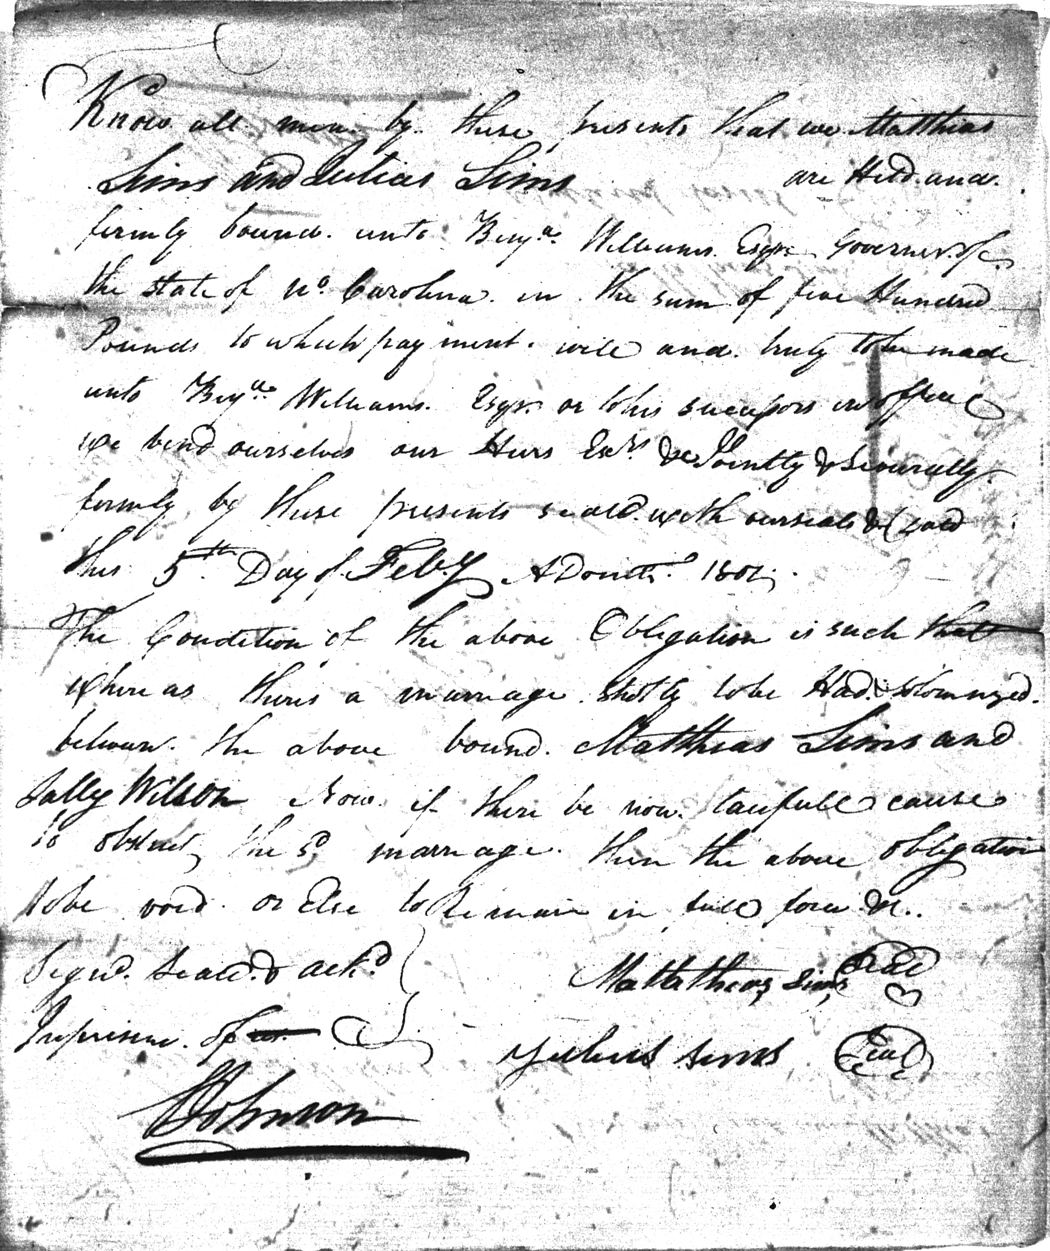 Know all men by these presents that we Matthias
Sims and Julias Sims are Held and
firmly bound unto Benjn. Williams Esqr. Governer &c
the state of No. Carolina in the sum of five Hundred
Pounds to which payment will and truly to be made
unto Benjn. Williams Esqr. or to his sucessors in office
we bind ourselves our Heirs Exrs. &c Jointly & Severally
firmly by these presents seald with our seals &
this 5th Day of Feby ADomi 180
The Condition of the above Obligation is such that
whereas theris a marriage shotly to be Had & solemnized
between the above bound Matthias Sims and
Sally Wilson Now if there be now lawfull cause
to obstruct the sd marriage then the above obligation
to be void or Else to Remain in full force &c.
Signd. Seald. & ackd
Inpresence of
Mattathias Sims Seal
Julius Sims Seal
Johnson